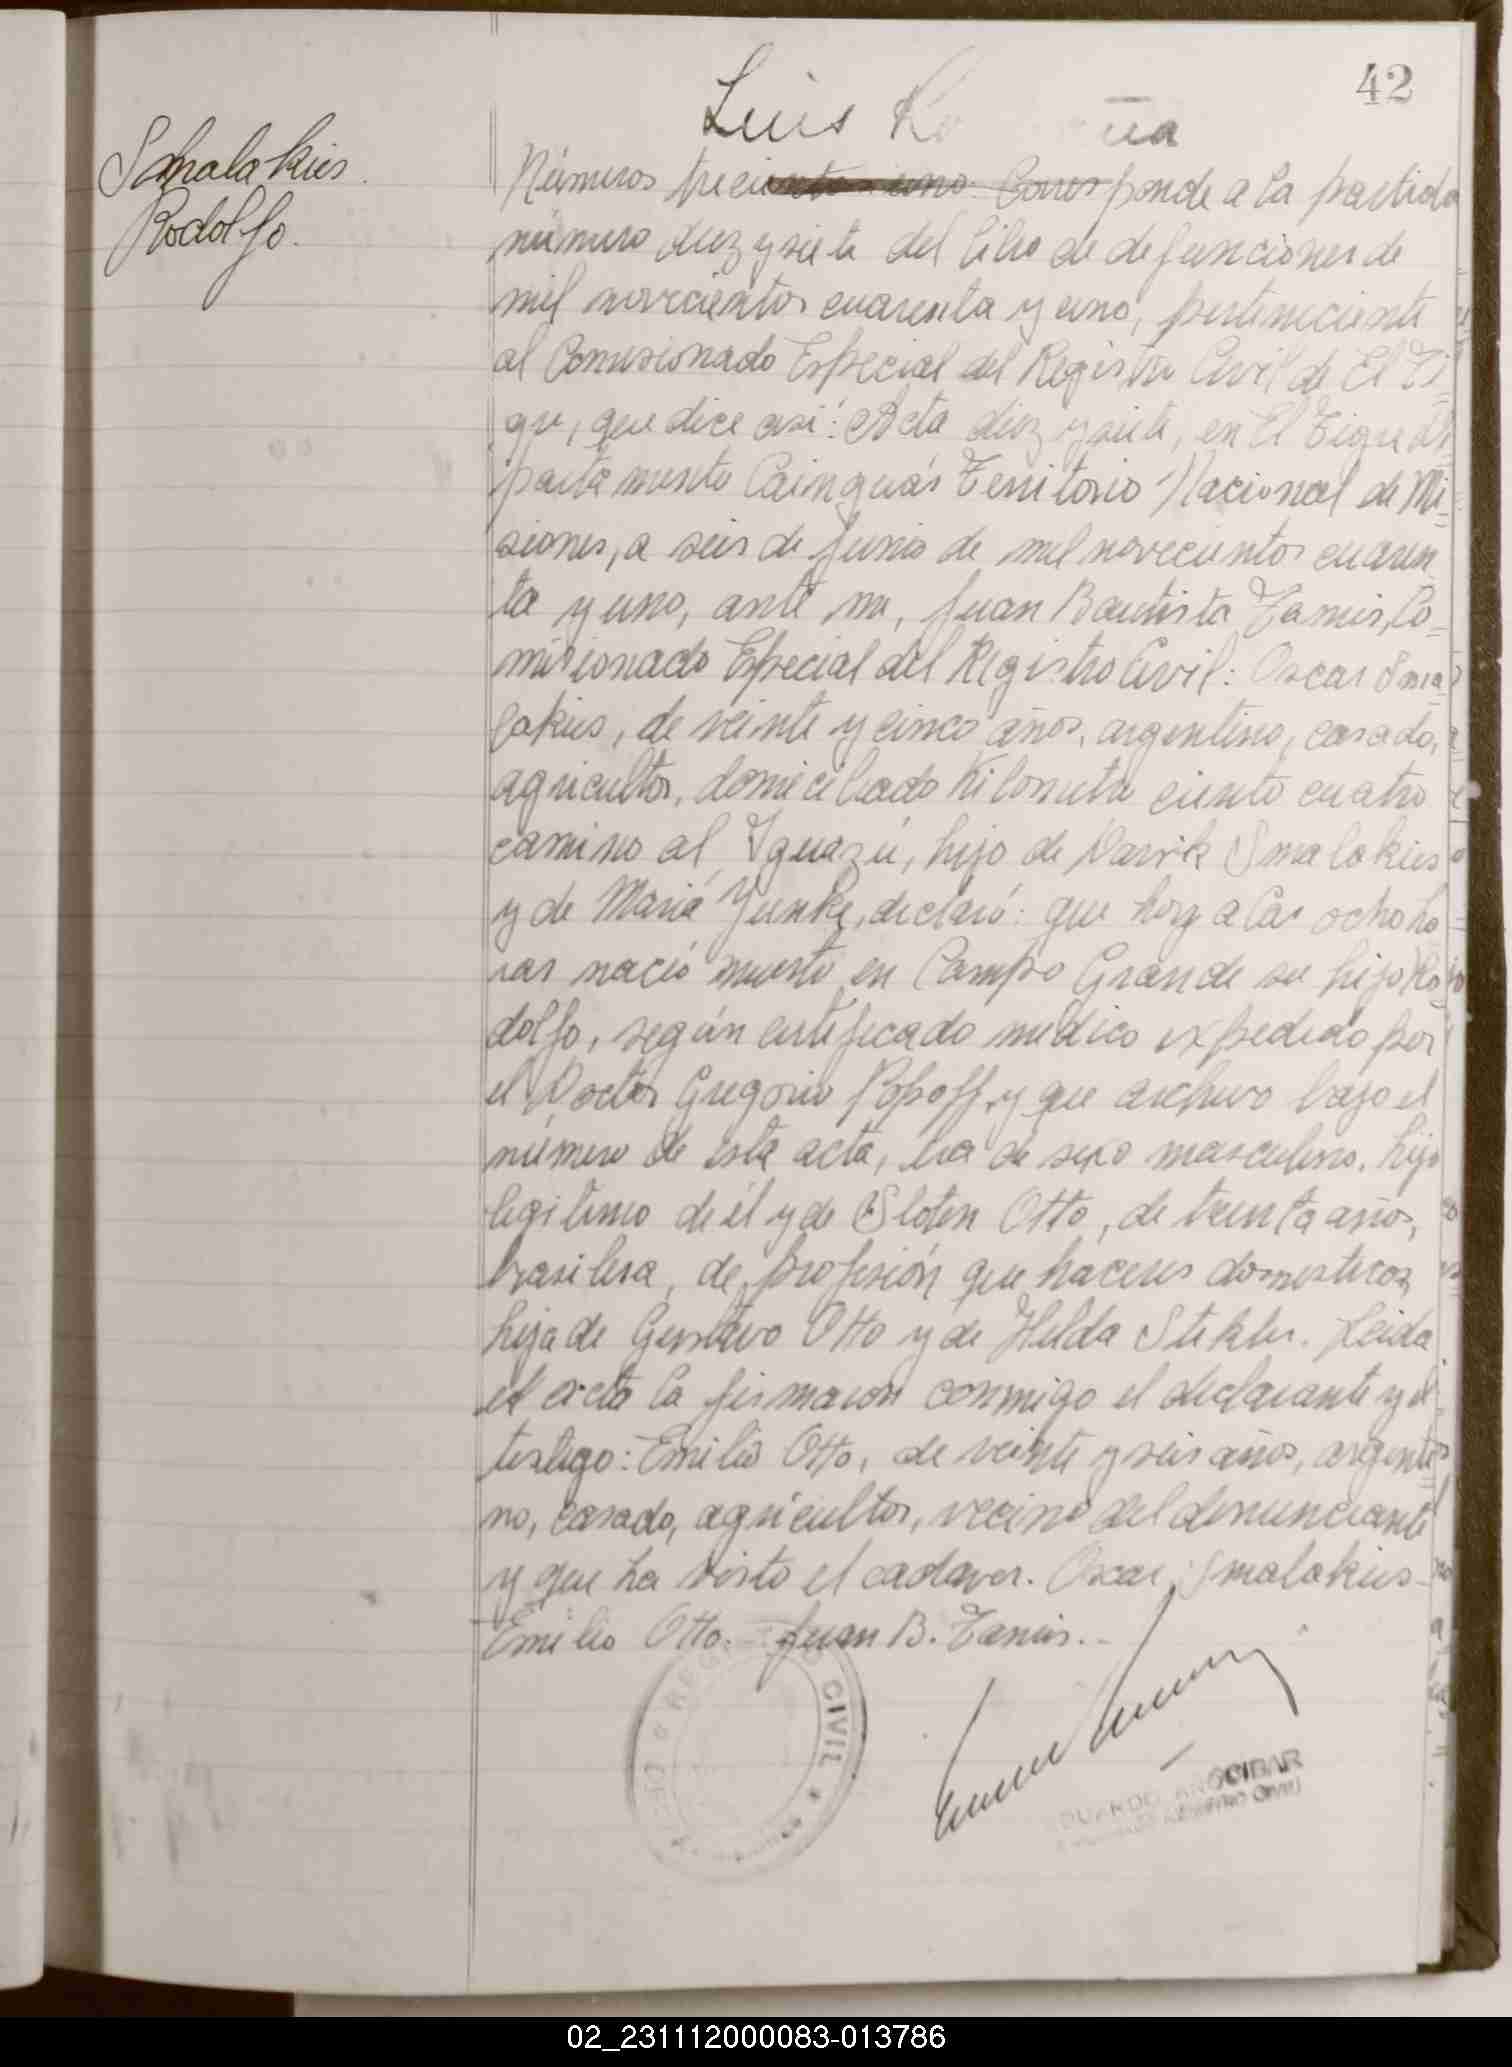 42
Luis Ro ña
Smalakies
Rodolfo.
Números trescientos uno. Corresponde a la partida
número diez y siete del libro de defunciones de
mil novecientos cuarenta y uno, perteneciente
al Comisionado Especial del Registro Civil de El Ti-
gre, que dice así: Acta diez y siete, en El Tigre De-
partamento Cainguás Territorio Nacional de Mi-
siones, a seis de junio de mil novecientos cuaren
ta y uno, ante mi, Juan Bautista Co-
misionado Especial del Registro Civil: Oscar Sma-
lakies, de veinte y cinco años, argentino, casado,
agricultor, domiciliado Kilometro ciento cuatro
camino al Iguazú, hijo de Smalakies
y de Maria Yunke, declaró: que hoy a las ocho ho-
ras nació muerto en Campo Grande su hijo Ro-
dolfo, según certificado medico expedido por
el Doctor Gregorio Popoff, y que archivo bajo el
número de esta acta, era de sexo masculino, hijo
legitimo de él y de Otto, de treinta años,
brasilera, de profesión que haceres domesticos,
hija de Gustavo Otto y de Helda Stekler. Leida
el acta la firmaron conmigo el declarante y el
testigo: Emilio Otto, de veinte y seis años, argenti-
no, casado, agricultor, vecino del denunciante
y que ha visto el cadaver. Oscar Smalakies-
Emilio Otto. Juan B.
REGISTRO CIVIL
EDUARDO AROCIBAR
REGISTRO CIVIL
02_231112000083-013786